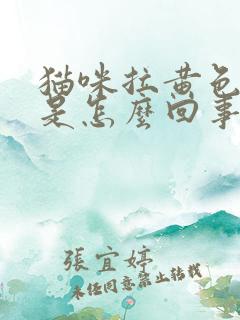 猫咪拉黄色
是怎麼回事
張宜婷
未经同意禁止转载